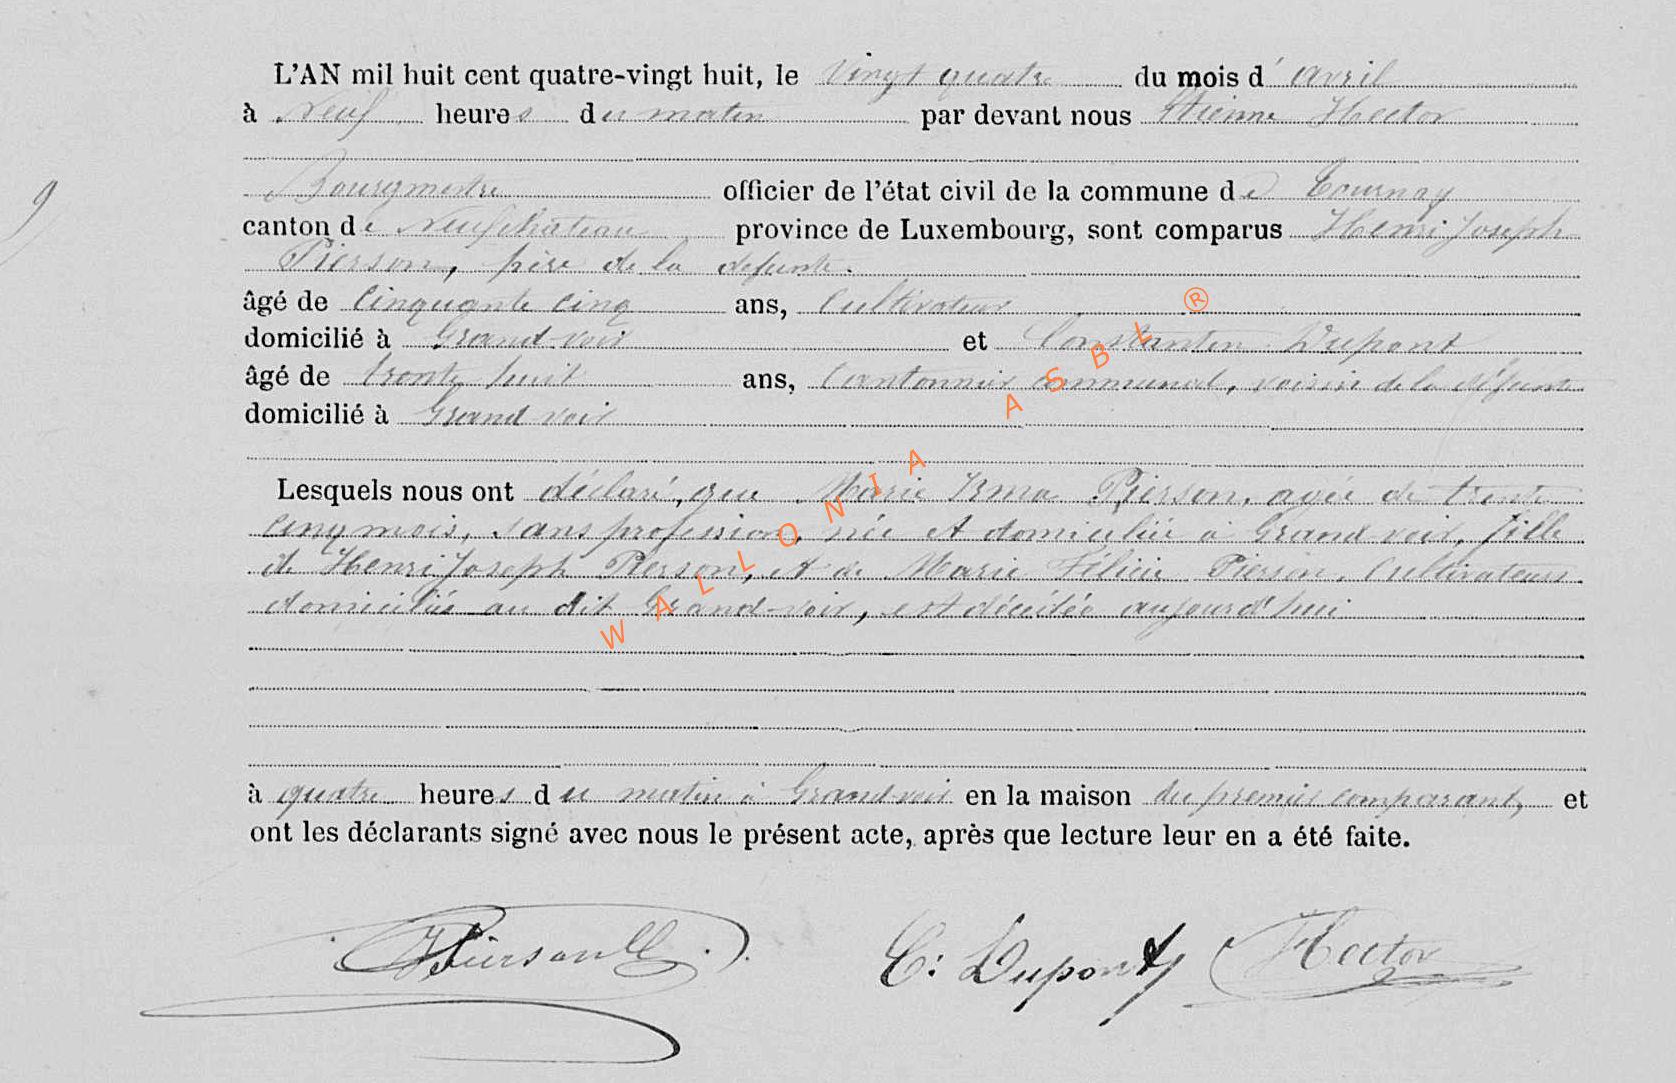 L'AN mil huit cent quatre-vingt huit, le vingt quatre du mois d'avril
à Neuf heures du matin par devant nous Etienne Hector
Bourgmestre officier de l'état civil de la commune de Tournay
9
canton de Neufchateau province de Luxembourg, sont comparus Henri Joseph
Pierson, père de la defunte.
âgé de cinquante cinq ans, Cultivateur
domicilié à Grand-voir et Constantin Dupont
âgé de trente huit ans, Cantonnier communal, voisin de la défunte
domicilié à Grand voir
Lesquels nous ont déclaré, que Marie Irma Pierson, agée de trente
cinq mois, sans profession, née et domiciliée à Grand-voir, fille
de Henri Joseph Pierson, et de Marie Félicie Pierson, Cultivateurs
domiciliés au dit Grand-voir, est décédée aujourd'hui
à quatre heures du matin à Grand-voir en la maison du premier comparant, et
ont les déclarants signé avec nous le présent acte, après que lecture leur en a été faite.
HPierson C: Dupont Hector
WALLONIA ASBL ®